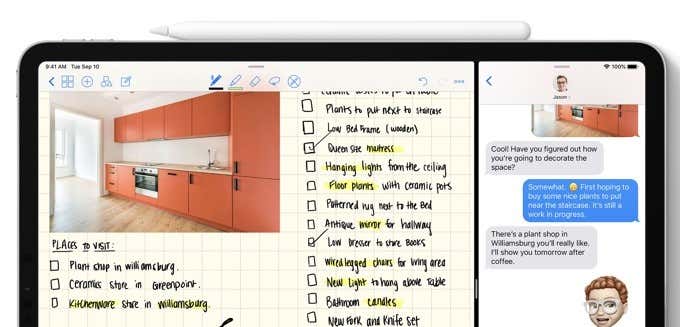 9:41 AM Tue Sep 10
100%
Plants to put next to staircase
Low Bed Frame (wooden)
Queen size matress
Hanging lights from the ceiling
Floor plants with ceramic pots
Patterned rug next to the bed
Antique mirror for hallway
Low dresser to store Books
Wired legged chairs for living area
New Light to hang above Table
Bathroom candles
New Fork and Knife Set
PLACES TO VISIT:
Plant shop in williamsburg.
Ceramics store in Greenpoint.
Kitchenware store in williamsburg.
Jason
Cool! Have you figured out how
you're going to decorate the
space?
Somewhat. 😅 First hoping to
buy some nice plants to put
near the staircase. It's still a
work in progress.
There's a plant shop in
Williamsburg you'll really like.
I'll show you tomorrow after
coffee.